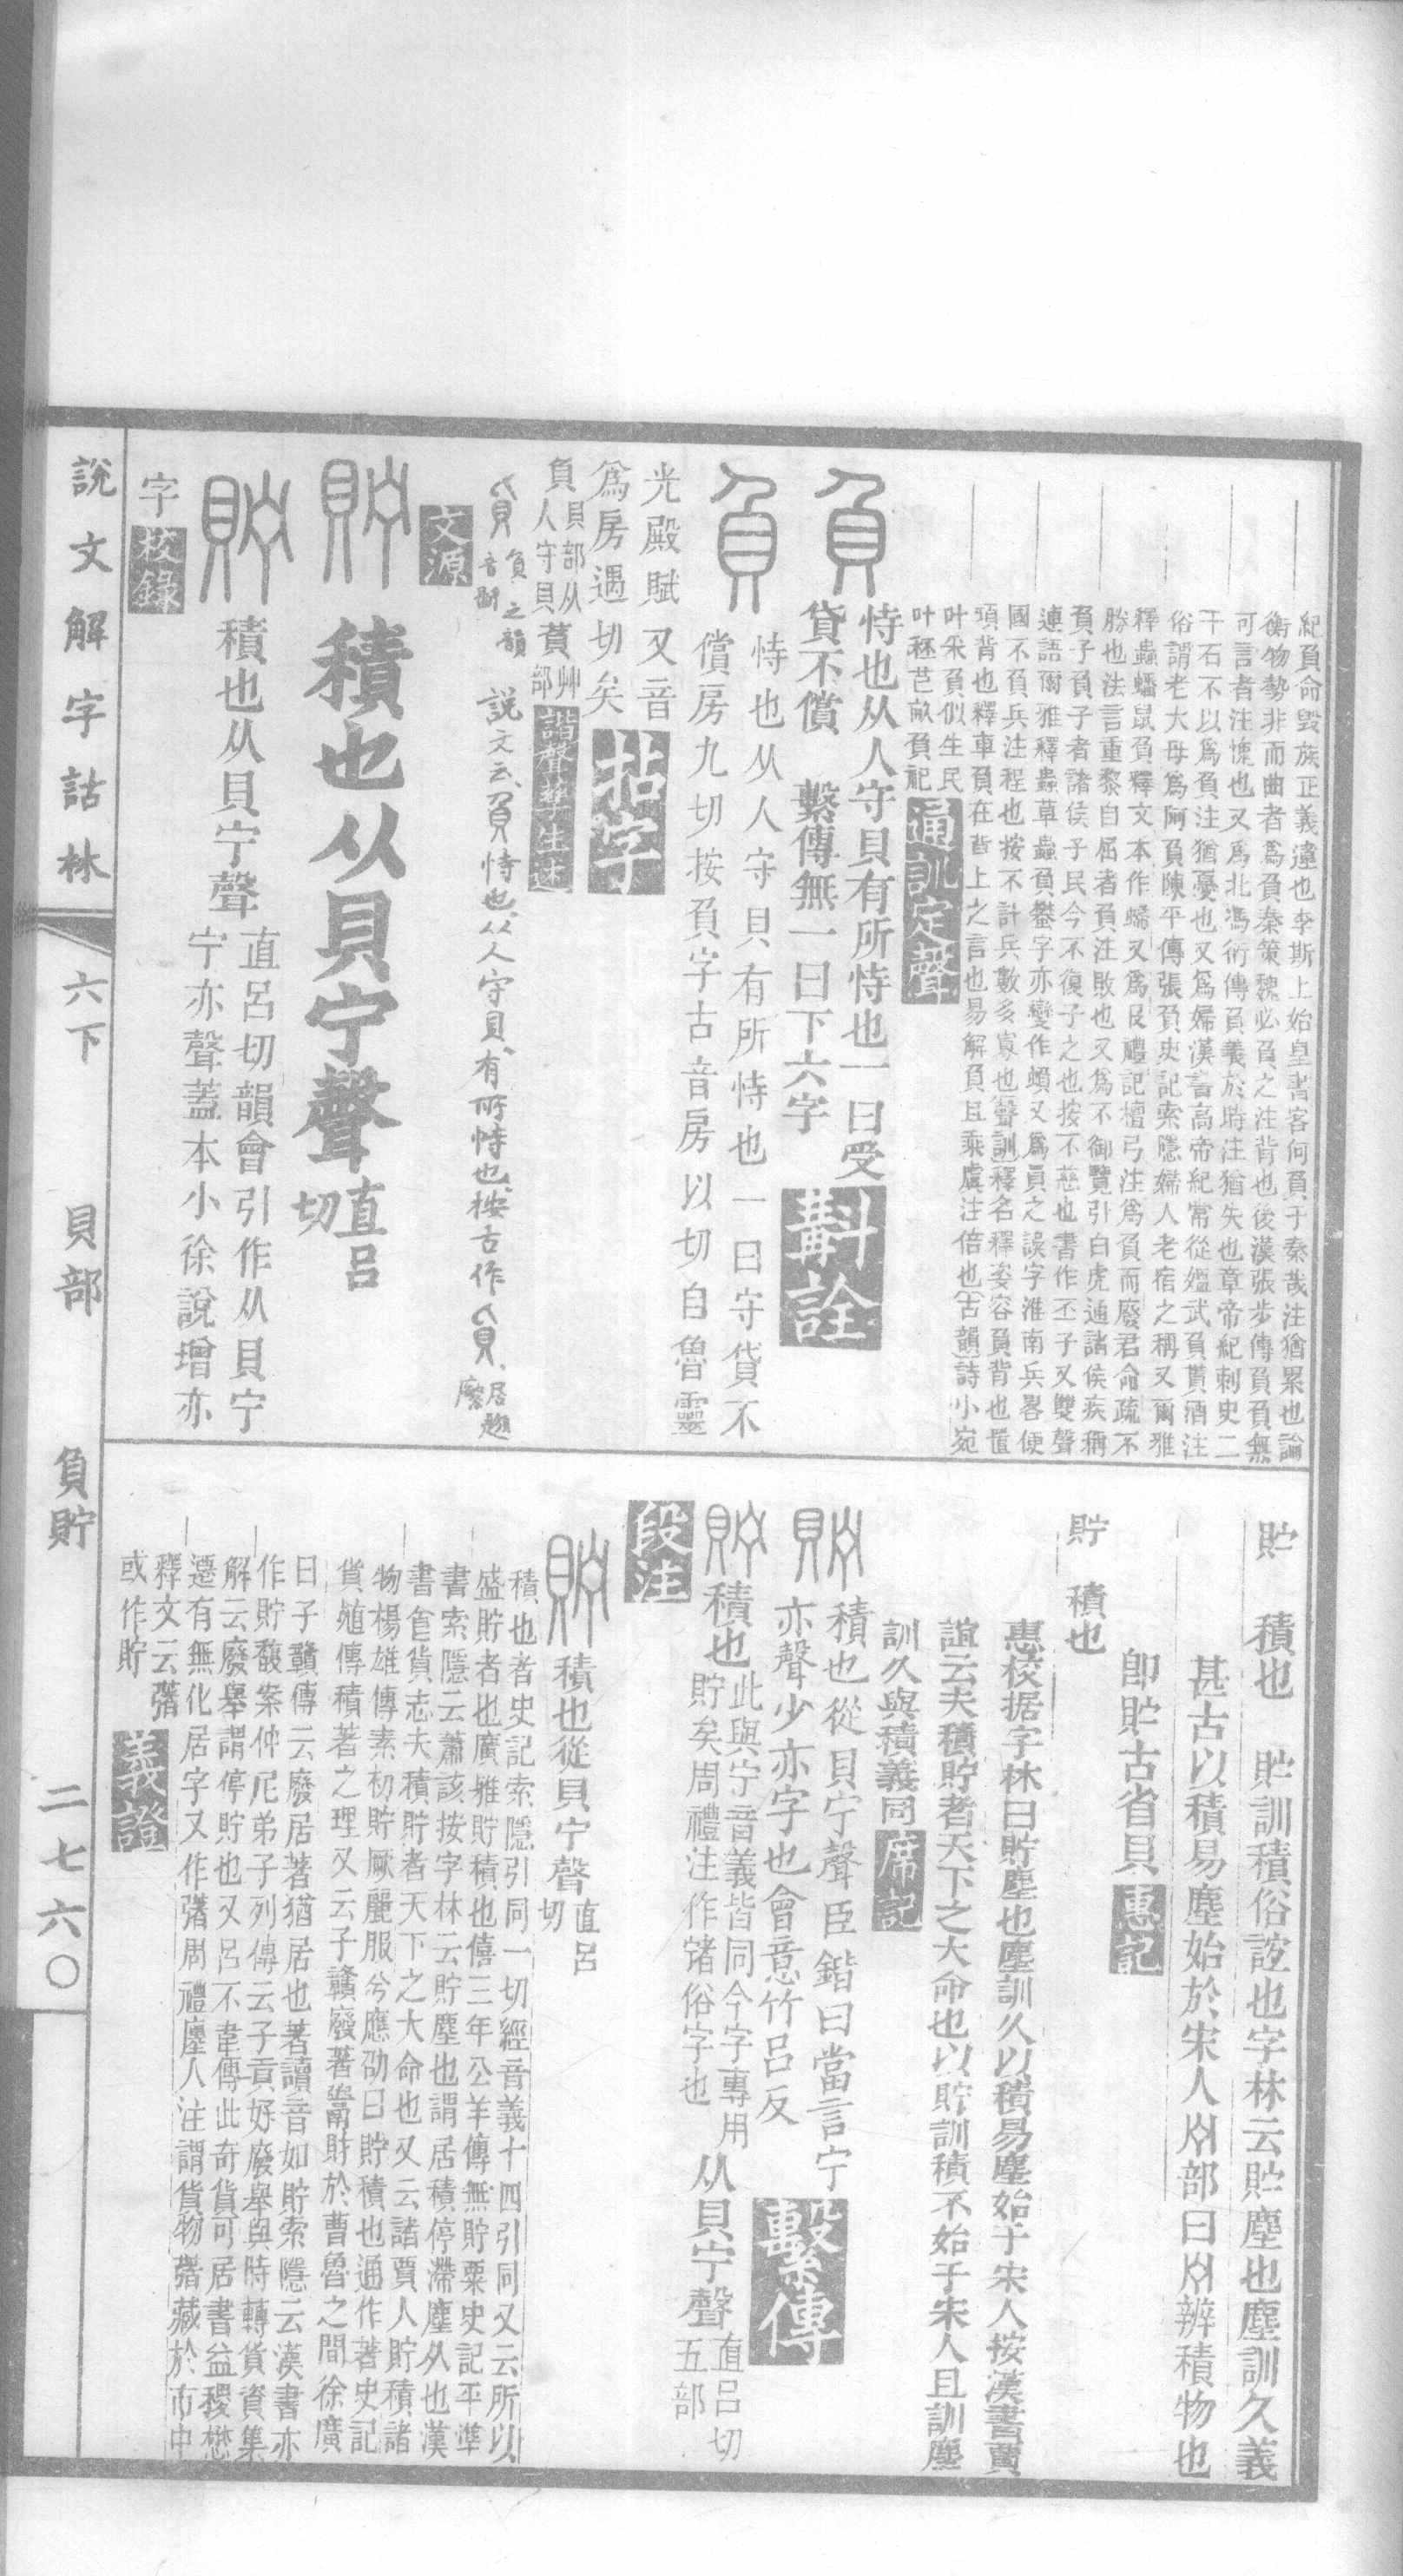 紀負命毀族正義違也李斯上始皇書客何負于秦哉注猶累也論
衡物勢非而曲者爲負秦策魏必負之注背也後漢張步傳負負無
可言者注愧也又爲北馮衍傳負義於時注猶失也章帝紀刺史二
千石不以爲負注猶憂也又爲婦漢書高帝紀常從媼武負貰酒注
俗謂老大母爲阿負陳平傳張負史記索隱婦人老宿之稱又爾雅
釋蟲蟠鼠負釋文本作蝜又爲 禮記檀弓注爲負而廢君命疏不
勝也法言重黎自屈者負注敗也又爲不御覽引白虎通諸侯疾稱
負子負子者諸侯子民今不復子之也按不慈也書作丕子又雙聲
連語爾雅釋蟲草蟲負蠜字亦變作蝜又爲員之誤字淮南兵畧便
國不負兵注程也按不計兵數多寡也聲訓釋名釋姿容負背也置
項背也釋車負在背上之言也易解負且乘虞注倍也古韻詩小宛
叶采負似生民
叶秠芑畝負祀通訓定聲
負 恃也从人守貝有所恃也一曰受
貸不償 繫傳無一曰下六字 斠詮
負 恃也从人守貝有所恃也一曰守貸不
償房九切按負字古音房以切自魯靈
光殿賦又音
爲房遇切矣 拈字
負貝部从
人守貝萯艸
部 諧聲孳生述
負之韻 說文云負恃也从人守貝有所恃也按古作 居趞
𣪘 文源
貯 積也从貝宁聲直呂
切
貯 積也从貝宁聲直呂切韻會引作从貝宁
宁亦聲蓋本小徐說增亦
字 校錄
說文解字詁林 六下 貝部 負貯 二七六〇
貯 積也 貯訓積俗訛也字林云貯塵也塵訓久義
甚古以積易塵始於宋人 部曰 辨積物也
卽貯古省貝 惠記
貯 積也
惠校据字林曰貯塵也塵訓久以積易塵始于宋人按漢書賈
誼云夫積貯者天下之大命也以貯訓積不始于宋人且訓塵
訓久與積義同 席記
貯 積也從貝宁聲臣鍇曰當言宁
亦聲少亦字也會意竹呂反 繫傳
貯 積也此與宁音義皆同今字專用
貯矣周禮注作㣥俗字也从貝宁聲直呂切
五部
段注
貯 積也從貝宁聲直呂
切
積也者史記索隱引同一切經音義十四引同又云所以
盛貯者也廣雅貯積也僖三年公羊傳無貯粟史記平準
書索隱云蕭該按字林云貯塵也謂居積停滯塵久也漢
書食貨志夫積貯者天下之大命也又云諸賈人貯積諸
物楊雄傳素初貯厥麗服兮應劭曰貯積也通作著史記
貨殖傳積著之理又云子贛廢著鬻財於曹魯之間徐廣
曰子贛傳云廢居著猶居也著讀音如貯索隱云漢書亦
作貯馥案仲尼弟子列傳云子貢好廢舉與時轉貨資集
解云廢舉謂停貯也又呂不韋傳此奇貨可居書益稷懋
遷有無化居字又作㣥周禮廛人注謂貨物㣥藏於市中
釋文云㣥
或作貯 義證